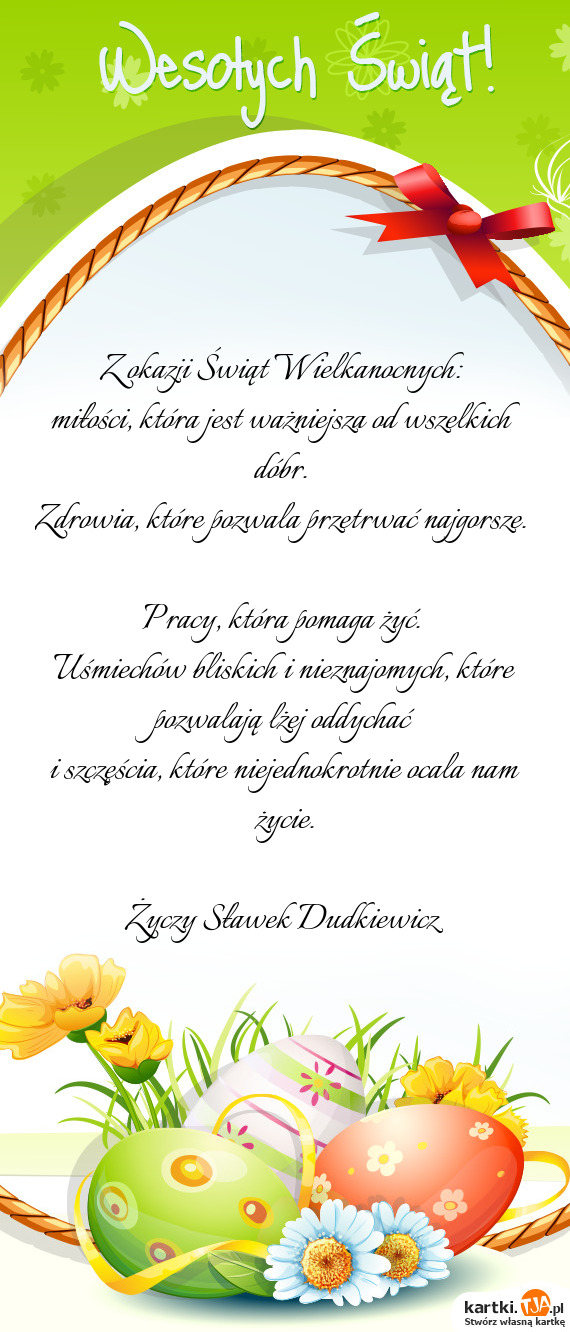 Wesołych Świąt!
Z okazji Świąt Wielkanocnych:
miłości, która jest ważniejsza od wszelkich
dóbr.
Zdrowia, które pozwala przetrwać najgorsze.
Pracy, która pomaga żyć.
Uśmiechów bliskich i nieznajomych, które
pozwalają lżej oddychać
i szczęścia, które niejednokrotnie ocala nam
życie.
Życzy Sławek Dudkiewicz
kartki.TJA.pl
Stwórz własną kartkę